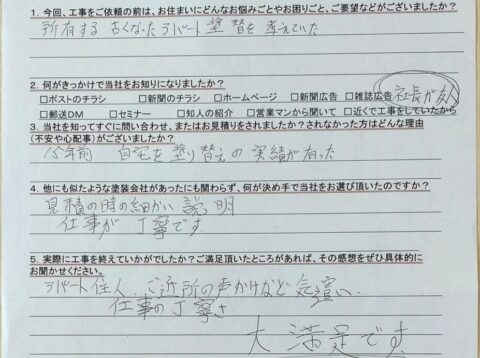 1. 今回、工事をご依頼の前は、お住まいにどんなお悩みごとやお困りごと、ご要望などがございましたか?
所有する 古くなったアパート 塗替を考えていた
2. 何がきっかけで当社をお知りになりましたか?
社長が友人
□ポストのチラシ □新聞のチラシ □ホームページ □新聞広告 □雑誌広告
□郵送DM □セミナー □知人の紹介 □営業マンから聞いて □近くで工事をしていたから
3. 当社を知ってすぐに問い合わせ、またはお見積りをされましたか?されなかった方はどんな理由
(不安や心配事)がございましたか?
15年前 自宅を塗り替えの実績が有った
4. 他にも似たような塗装会社があったにも関わらず、何が決め手で当社をお選び頂いたのですか?
見積の時の細かい説明
仕事が丁寧です
5. 実際に工事を終えていかがでしたか?ご満足頂いたところがあれば、その感想をぜひ具体的に
お聞かせください。
アパート住人、ご近所の声かけなど気遣い、
仕事の丁寧さ
大満足です